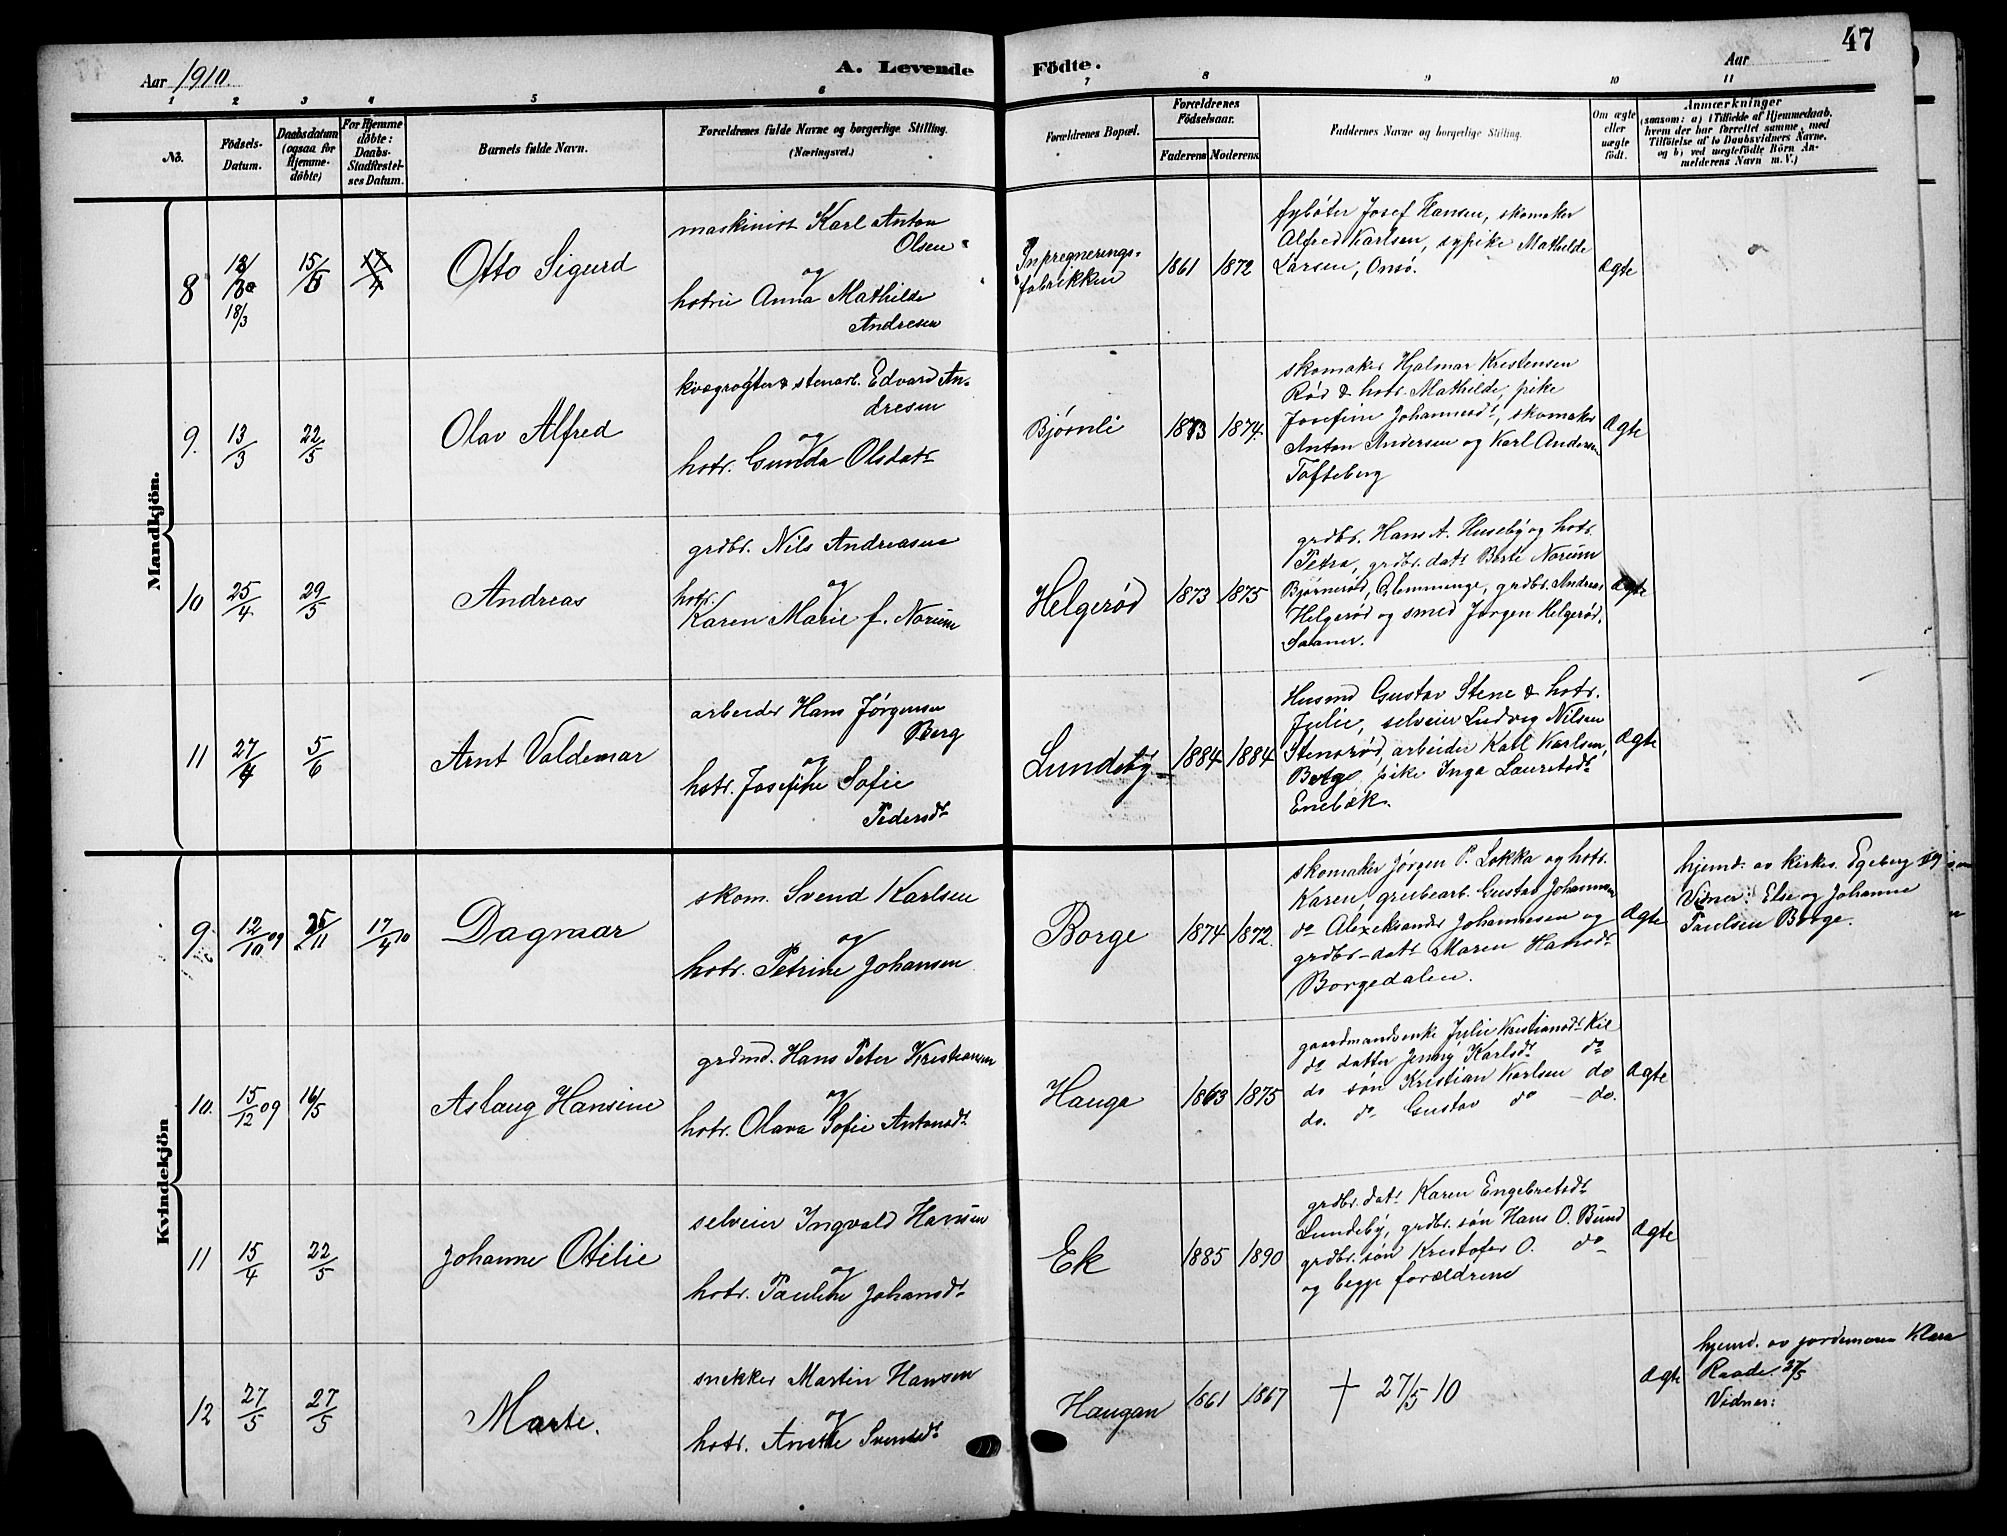 47
Aar 1910.
A. Levende Födte.
Aar
1 2 3 4 5 6 7 8 9 10 11
No.
Födsels-Datum.
Daabsdatum (ogsaa for Hjemme-döbte)
For Hjemme döbte: Daabs-Stadfæstel-ses Datum.
Barnets fulde Navn.
Forældrenes fulde Navne og borgerlige Stilling.
(Næringsvei.)
Forældrenes Bopæl.
Forældrenes Födselsaar.
Faderens Moderens
Faddernes Navne og borgerlige Stilling.
Om ægte eller uægte födt.
Anmærkninger
(saasom: a) i Tilfælde af Hjemmedaab,
hvem der har forrettet samme, med
Tilföielse af to Daabsvidners Navne,
og b) ved uægtefödte Börn An-
melderens Navn m. V.)
Mandkjön.
8
18/3
15/5
17/4
Otto Sigurd
maskinist Karl Anton
Olsen
og
hstru Anna Mathilde
Andresen
Inpregnerings-
fabrikken
1861 1872
fyrbøter Josef Hansen, skomaker
Alfred Karlsen, sypike Mathilde
Larsen, Onsø.
Ægte
9. 13/3 22/5
Olav Alfred
kvægrøgter & stenarb. Edvard An-
dresen
og
hstr. Gunda Olsdatr
Bjørnli
1873 1874.
skomaker Hjalmar Kristensen
Rød & hstr. Mathilde, pike
Josefine Johannesdtr, skomaker
Anton Andersen og Karl Andersen
Tofteberg
Ægte
10 25/4 29/5
Andreas
grdbr. Nils Andreasen
og
hstr.
Karen Marie f. Norum
Helgerød
1873 1875
grdbr. Hans A. Huseby og hstr.
Petra, grdbr. datr Berte Norum
Bjørnerød, Glemminge, grdbr. Andreas
Helgerød og smed Jørgen Helgerød,
Saaner.
Ægte
11 27/4 5/6
Arnt Valdemar
arbeider Hans Jørgensen
Berg
og
hstr. Josefine Sofie
Pedersdtr
Lundeby
1884 1884
Husmd Gustav Stene & hstr.
Julie, selveier Ludvig Nilsen
Stensrød, arbeider Karl Karlsen,
Berg, pike Inga Lauretsdtr
Enebæk.
Ægte
Kvindekjön
9. 12/10 09 25/11 17/4 10
Dagmar
skom. Svend Karlsen
og
hstr. Petrine Johansen
Borge
1874 1872.
skomaker Jørgen P. Løkka og hstr.
Karen, grubearb. Gustav Johannesen
do Alexeksander Johannesen og
grdbr-datr Maren Hansdtr
Borgedalen.
Ægte
hjemd. av kirkes. Egeberg
Vidner: Else og Johanne
Paulsen Borge.
10. 15/12 09 16/5
Aslaug Hansine
grdmd. Hans Peter Kristiansen
og
hstr. Olava Sofie Antonsdtr
Hauge
1863 1875
gaardmandsenke Julie Kristiansdtr Kil
do datter Jenny Karlsdtr do
do søn Kristian Karlsen do
do. do Gustav do - do.
Ægte
11 15/4 22/5
Johanne Otilie
selveier Ingvald Hansen
og
hstr. Pauline Johansdtr
Ek
1885 1890
grdbr. datr Karen Engebretsdtr
Lundeby, grdbr. søn Hans O. Bund
grdbr. søn Kristofer O. do
og begge forældrene
Ægte
12 27/5 27/5
Marte.
snekker Martin Hansen
og
hstr. Anette Svensdtr
Haugan
1861 1867
† 27/5 10
Ægte
hjemd. av jordemoren Klara
Raade 27/5
Vidner: